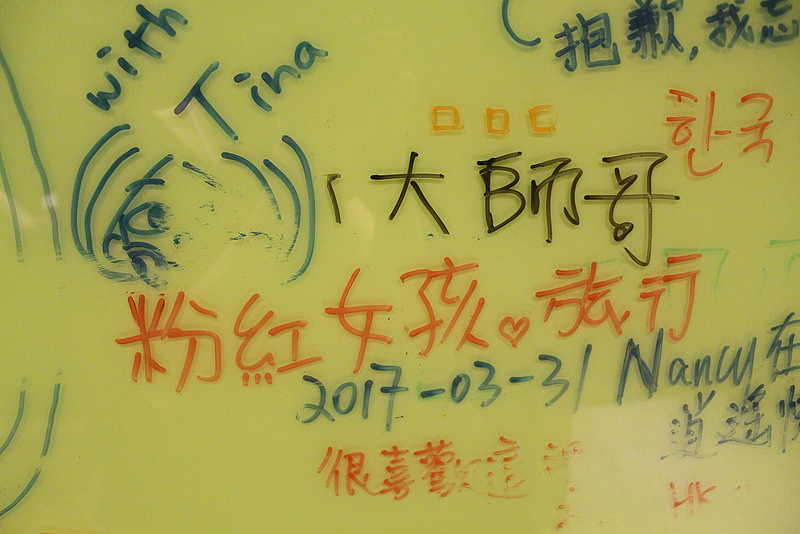 with
Tina
抱歉,我忘
한국
大師哥
粉紅女孩♥旅行
2017-03-31 Nancy在
逍遙
很喜歡這裡
HK